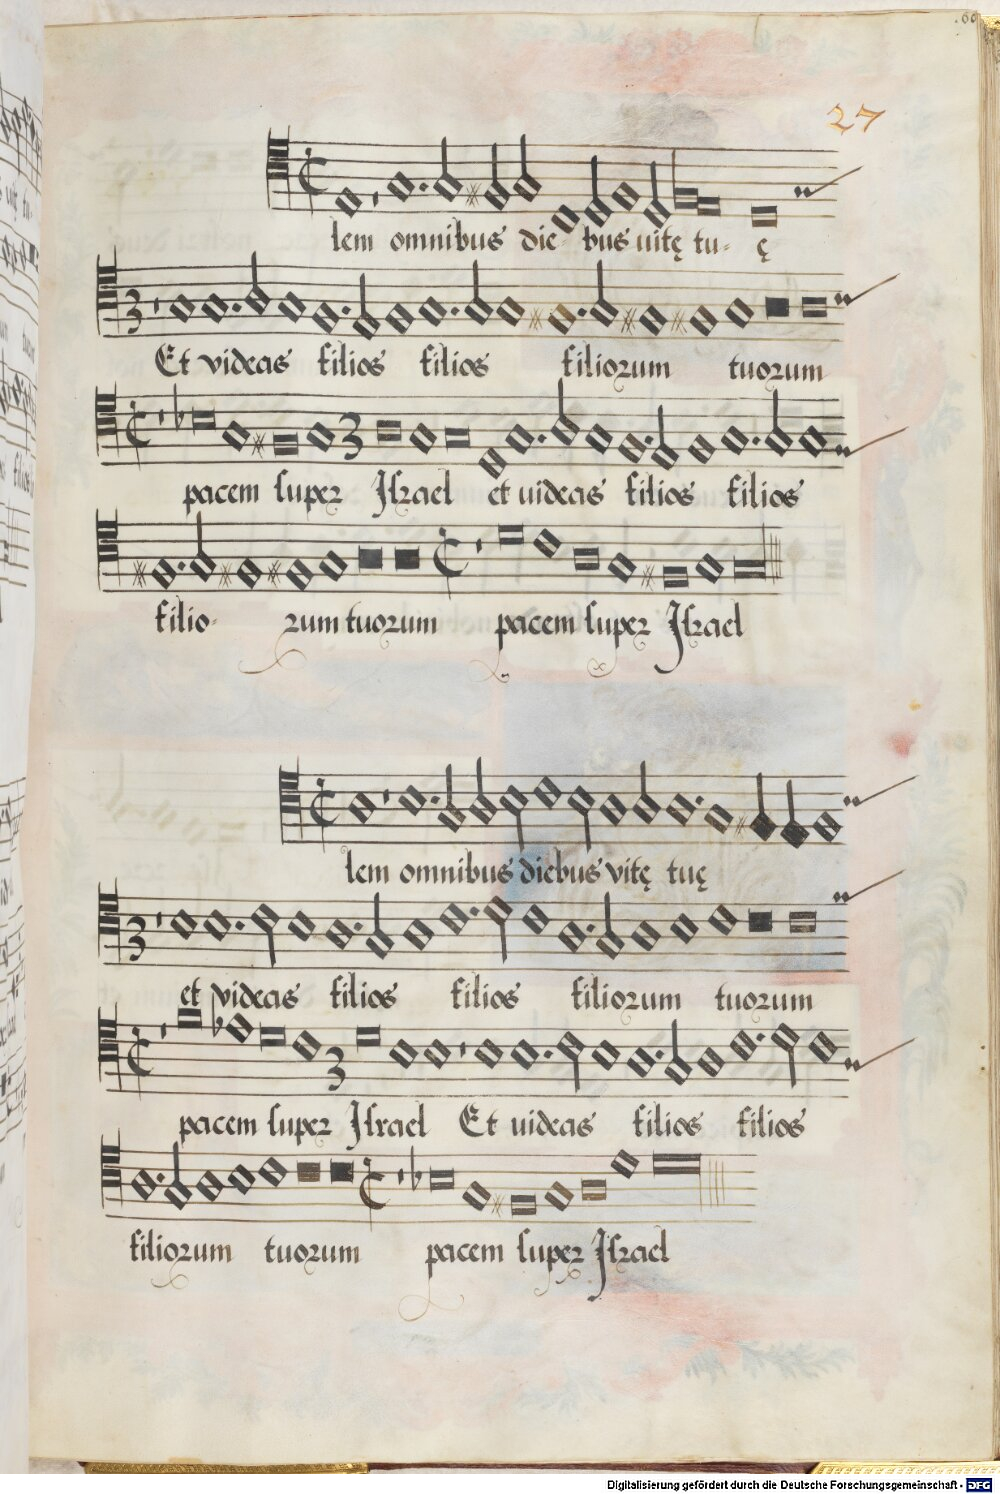 .60
27
lem omnibus die- bus uitę tu- ę
Et videas filios filios filiorum tuorum
pacem super Israel et uideas filios filios
filio- rum tuorum pacem super Israel
lem omnibus diebus vitę tuę
et videas filios filios filiorum tuorum
pacem super Israel Et uideas filios filios
filiorum tuorum pacem super Israel
Digitalisierung gefördert durch die Deutsche Forschungsgemeinschaft - DFG